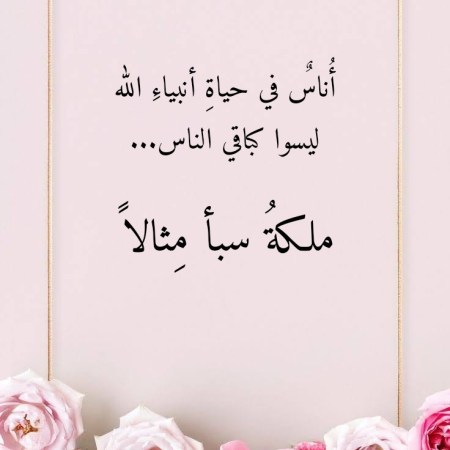 أُناسٌ في حياةِ أنبياءِ الله
ليسوا كباقي الناس...
ملكةُ سبأ مِثالاً